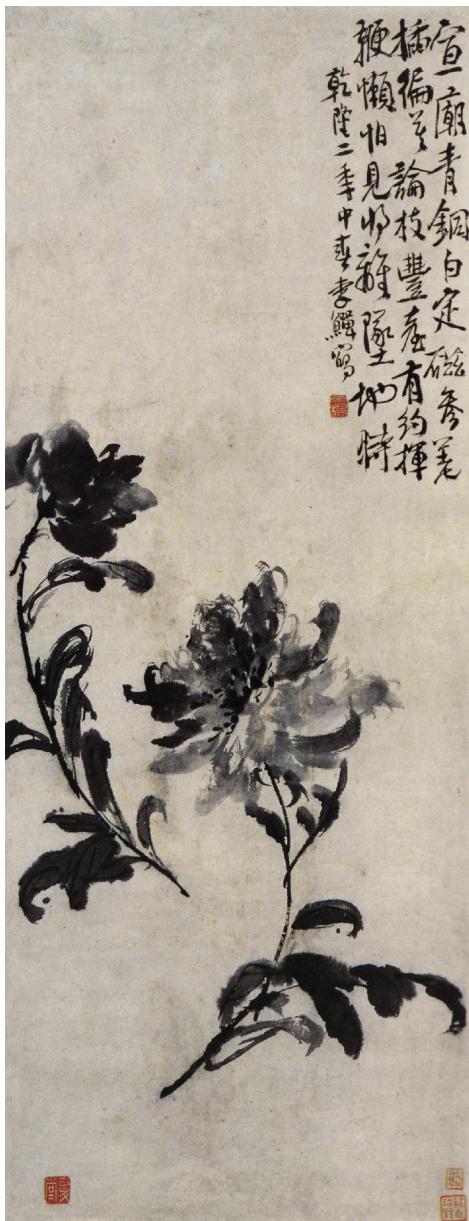 宣廟青銅白定磁參差
插徧莫論枝豐臺有約揮
鞭懶怕見將離墜地時
乾隆二年中春李鱓寫